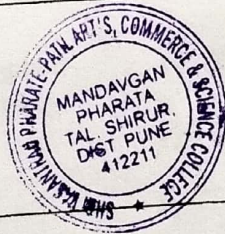 SHRI VASANTRAO PHARATE-PATIL ART'S, COMMERCE & SCIENCE COLLEGE
MANDAVGAN
PHARATA
TAL. SHIRUR,
DIST PUNE
412211